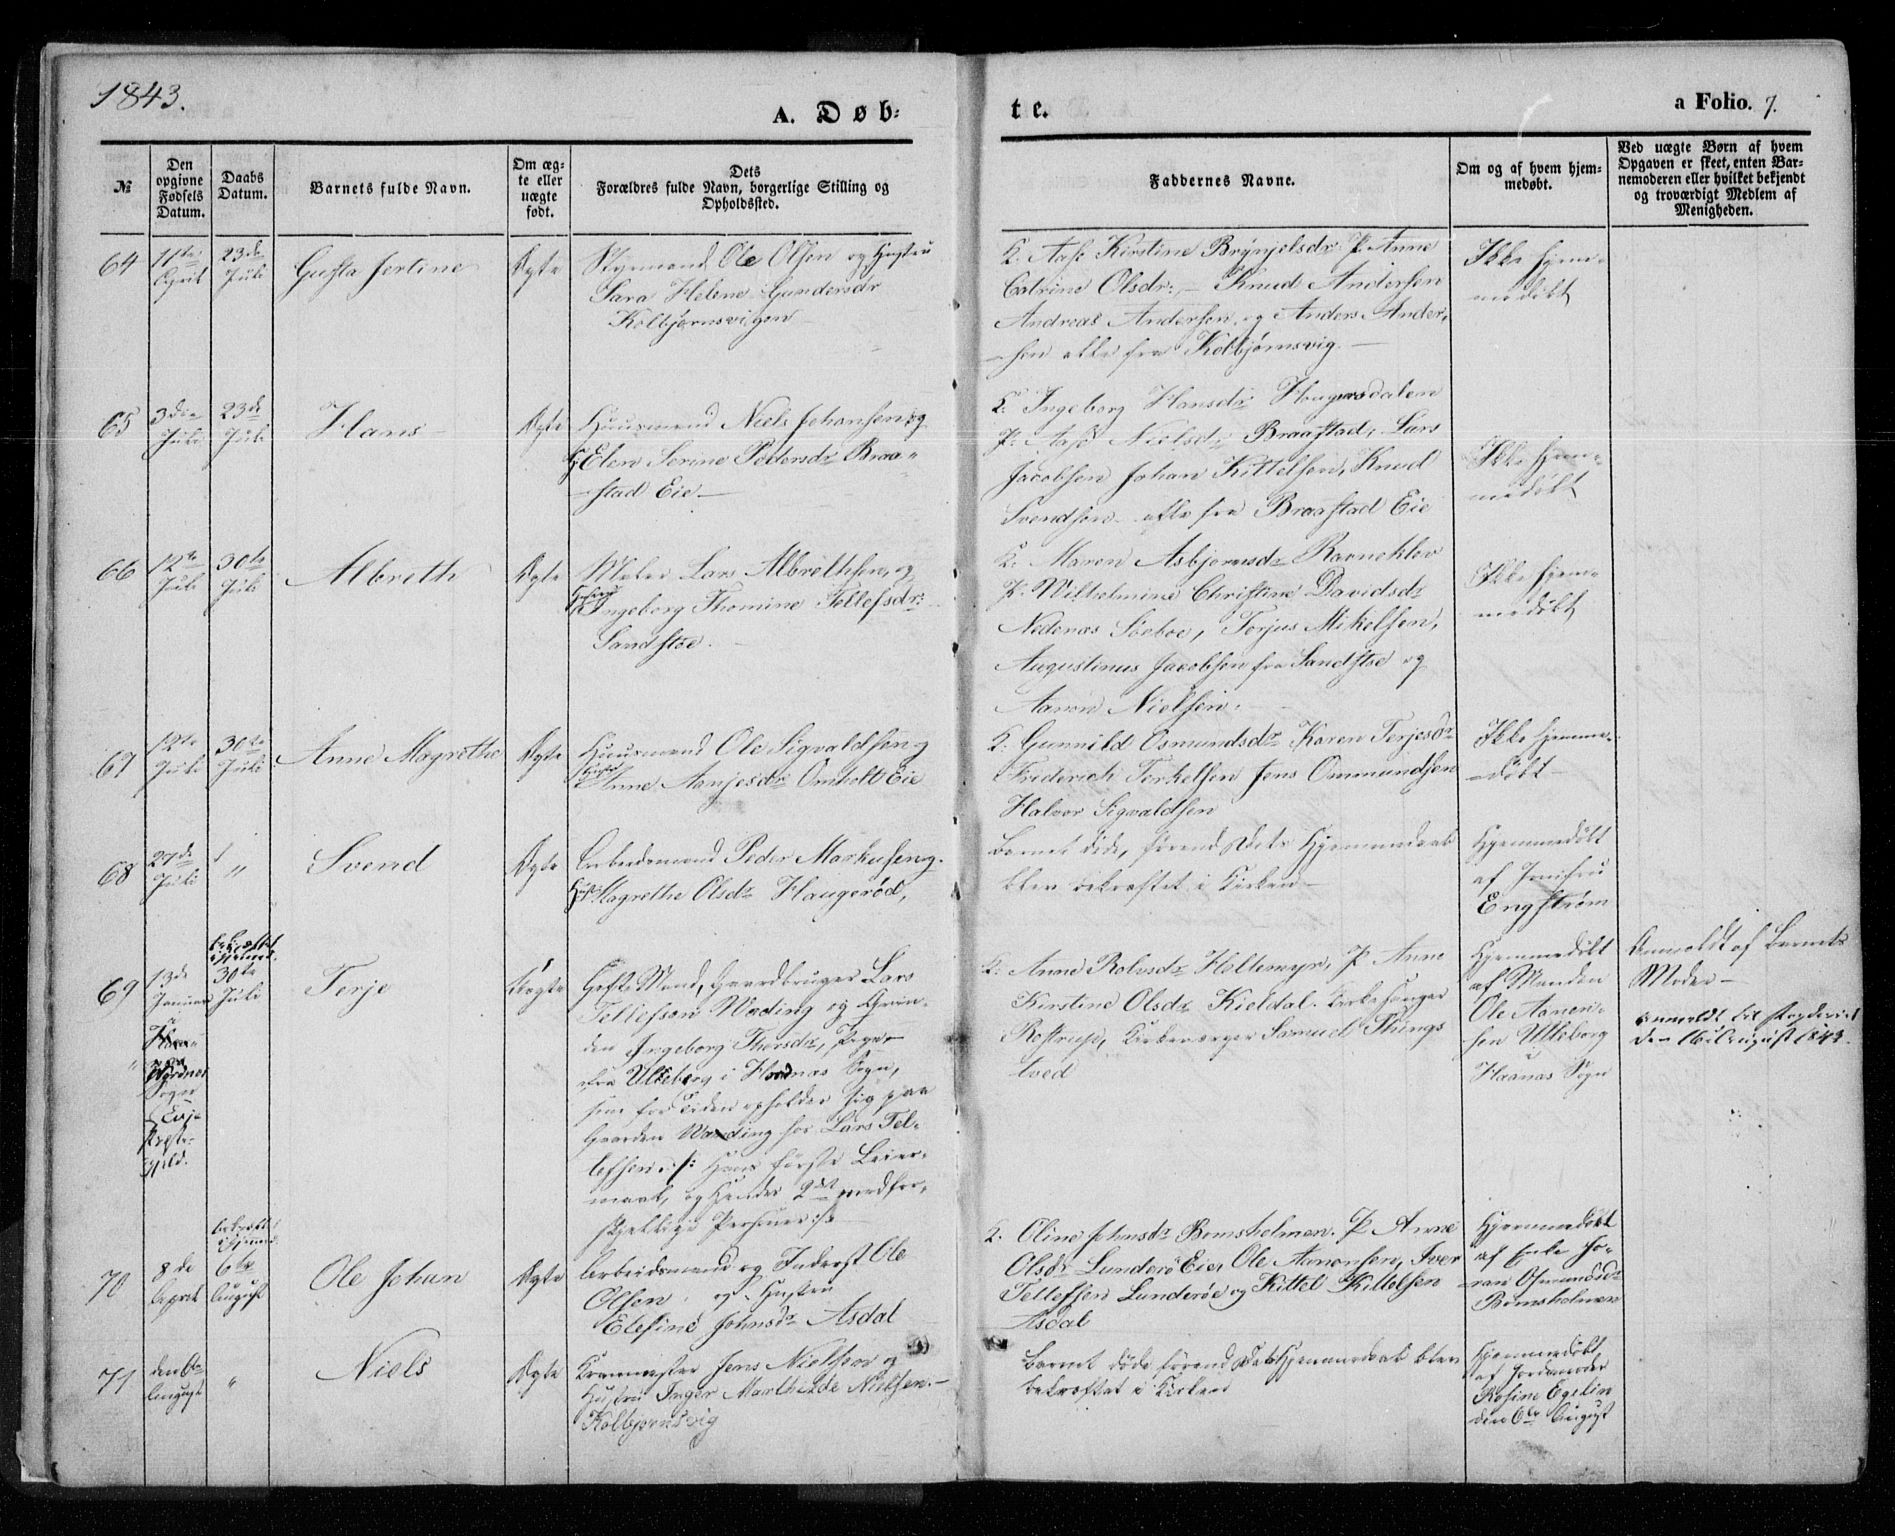 1843.
A. Døb-
te.
a Folio. 7.
№
Den opgivne Fødsels Datum.
Daabs Datum.
Barnets fulde Navn.
Om ægte eller uægte født.
Dets Forældres fulde Navn, borgerlige Stilling og Opholdssted.
Faddernes Navne.
Om og af hvem hjemmedøbt.
Ved uægte Børn af hvem Opgaven er skeet, enten Barnemoderen eller hvilket bekjendt og troværdigt Medlem af Menigheden.
64
11te April
23de Juli
Gusta Jertine
Ægte
Styrmand Ole Olsen og Hustru
Sara Helene Gundersdr
Kolbjørnsvigen
K: Aase Kirstine Brynjelsdr. P. Anne
Catrine Olsdr: – Knud Andersen
Andreas Andersen, og Anders Ander-
-sen alle fra Kolbjørnsvig. –
Ikke hjem-
medøbt
65
3die Juli
23de Juli
Hans
Ægte
Huusmand Niels Johansen og
H Elen Serine Pedersdr Braa-
-stad Eie –
K: Ingeborg Hansdr Haugersdalen
P: Aase Nielsdr Braastad, Lars
Jacobsen Johan Kittelsen, Knud
Svendsen alle fra Braastad Eie
Ikke hjem-
medøbt
66
12te Juli
30te Juli
Albreth
Ægte
Lars Albrethsen, og
Ingeborg Thomine Tellefsdr:
Sandstøe.
K: Maren Asbjørnsdr Ravneklev
P. Wilhelmine Christine Davidsdr
Nedenæs Søeboe, Terjus Mikelsen,
Augustinus Jacobsen fra Sandstøe og
Aanon Nielsen.
Ikke hjem-
medøbt
67
12te Juli
30te Juli
Anne Magrethe
Ægte
Huusmand Ole Sigvaldsen og
Anne Aanjesdr Omholt Eie
K: Gunnild Osmundsdr Karen Terjesdr
Friderich Terkelsen Jens Ommundsen
Halvor Sigvaldsen
Ikke hjemme-
-døbt –
68
27de Juli
"
Svend
Ægte
Arbeidsmand Peder Markusen og
Magrethe Olsdr Haugerød,
Barnet døde, førend Dets Hjemmedaab
blev bekræftet i Kirken –
Hjemmedøbt
af Jomfru
Engstrøm
69
13de Januar
i
Sogn
Evje
Præste-
gjeld.
bekræftet
30te Juli
Terje
Uægte
Gift Mand, Gaardbruger Lars
Tellefsen Wading og Qvin-
den Ingeborg Thorsdr, Pige
fra Ulleberg i Hordnæs Sogn,
som for Tiden opholder sig paa
Gaarden Wading hos Lars Tel-
lefsen. /: Hans første Leier-
maal, og Hendes 2det med for-
skjellige Personer :/
K: Anne Rolvsdr Holtemyr, P. Anne
Kirstine Olsdr Kieldal. Kirkesanger
Rostrup, Kirkeværger Samuel Things
tved
Hjemmedøbt
af Manden
Ole Aanon-
sen Ulleberg
Haanæs Sogn
Anmeldt af Barnets
Moder –
Anmeldt til Fogderiet
den 16 August 1843.
70
8de
bekræftet
6te August
Ole Johan
Ægte
Arbeidsmand og Inderst Ole
Olsen og Hustru
Elesine Johnsdr Asdal
K: Oline Johnsdr Bomsholmen. P. Anne
Olsdr Lunderö Eie, Ole Aanonsen, Iver
Tellefsen Lunderøe og Kittel Kittelsen
Asdal
Hjemmedøbt
af Enke Jo-
Osmundsdr
Bomsholmen
71
den 6te August
"
Niels
Ægte
Jens Nielsen og
Hustru Inger Marthilde Nielsen. –
Kolbjørnsvig
Barnet døde førend dets Hjemmedaab blev
bekræftet i Kirken
Hjemmedøbt
af Jordemoder
Rosine Egelin
den 6te August